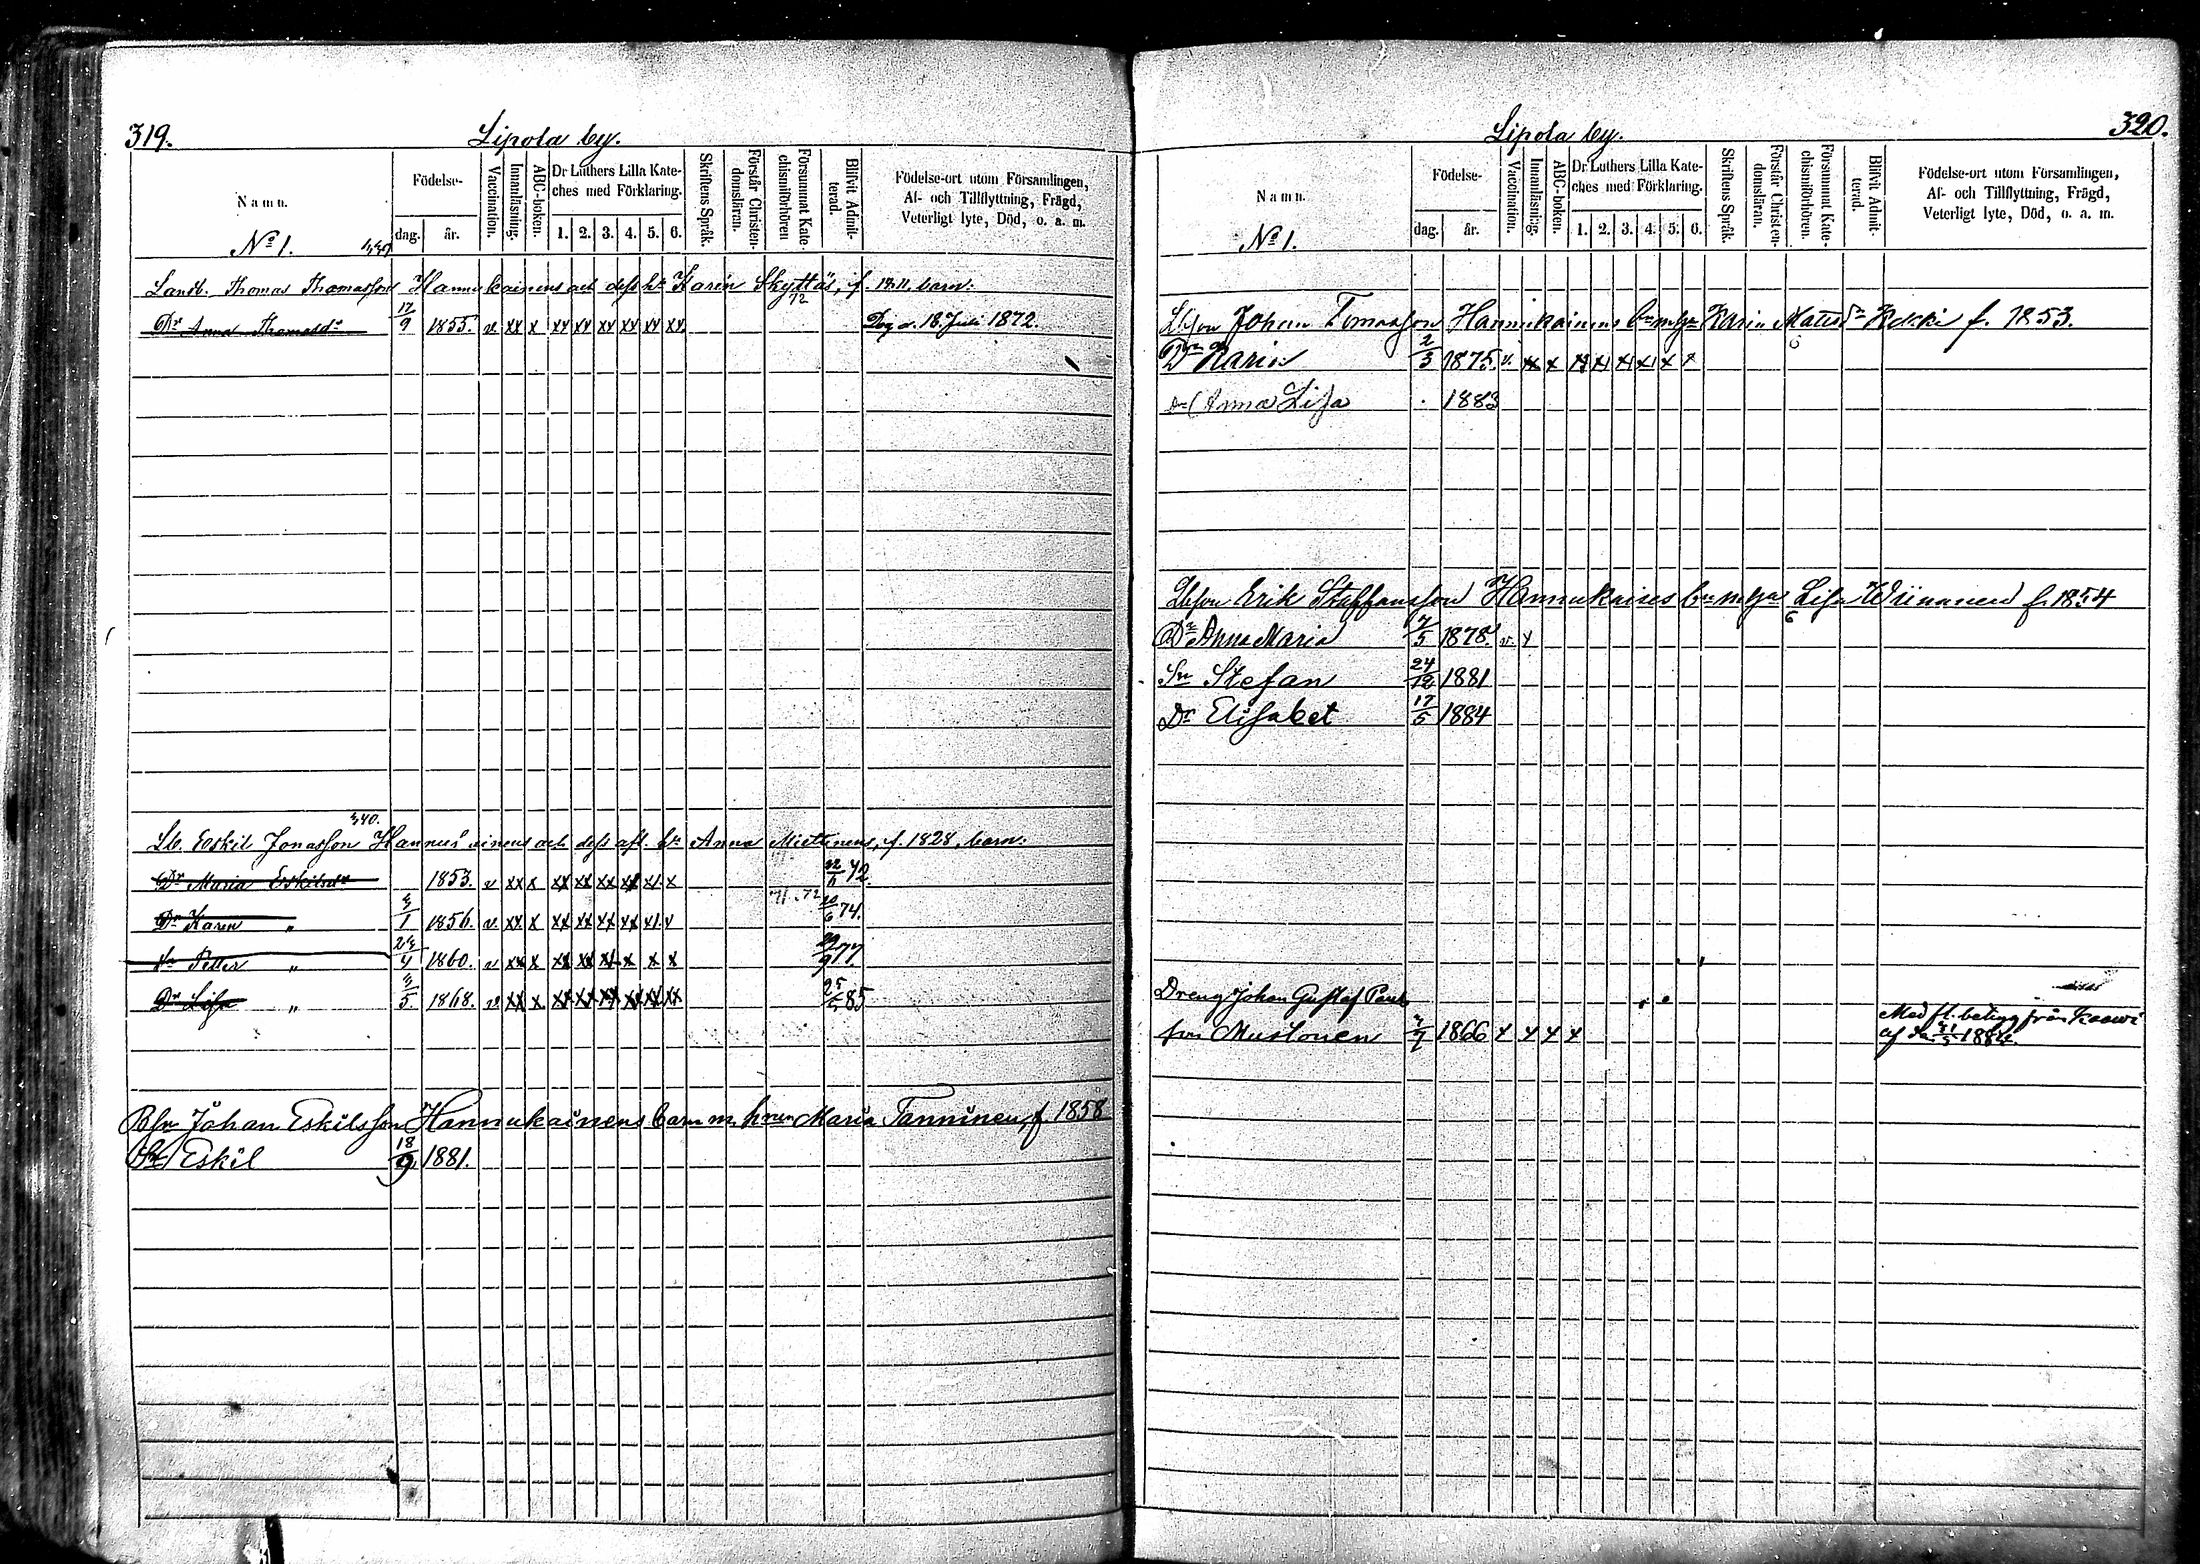 319.
Lipola by.
Namn.
Födelse-
dag.
år.
Vaccination.
Innanläsning.
ABC-boken.
Dr Luthers Lilla Kate-
ches med Förklaring.
1. 2. 3. 4. 5. 6.
Skriftens Språk.
Förstår Christen-
domsläran.
Försummat Kate-
chismiförhören
Blifvit Admit-
terad.
Födelse-ort utom Församlingen,
Af- och Tillflyttning, Frägd,
Veterligt lyte, Död, o. a. m.
No 1.
Landb. Thomas Thomasson Hannukainens och dess h. Karin Skyttäs, f. barn:
72
Dr Anna Thomasdr 17/9 1855. v. xx x xx xx xx xx xx xx Dog d. 18 Juli 1872.
340.
Lb. Eskil Jonasson Hannukainens och dess afl. h. Anna Miettinens, f. 1828, barn:
Dr Maria Eskilsdr 1853. v xx x xx xx xx xx x x 22/6 72.
Dr Karin " 3/1 1856. v. xx x xx xx xx xx x x 71. 72 /6 74.
Sn Petter " 24/4 1860. v xx x xx xx xx x x x /9 77.
Dr Lisa " 3/5. 1868. v xx x xx xx xx xx xx xx 25/5 85
Bsn Johan Eskilsson Hannukainens barn m. hrun Maria Tanninen, f 1858
Sn Eskil 18/9 1881.
320.
Lipola by.
Namn.
Födelse-
dag.
år.
Vaccination.
Innanläsning.
ABC-boken.
Dr Luthers Lilla Kate-
ches med Förklaring.
1. 2. 3. 4. 5. 6.
Skriftens Språk.
Förstår Christen-
domsläran.
Försummat Kate-
chismiförhören.
Blifvit Admit-
terad.
Födelse-ort utom Församlingen,
Af- och Tillflyttning, Frägd,
Veterligt lyte, Död, o. a. m.
No 1.
Lbson Johan Tomasson Hannukainens Karin Matsdr f. 1853.
Dr Karin 2/3 1875. v. x x x x x x x x
Dr Anna Lisa 1883
Lbson Erik Staffansson Hannukaises Lisa Wiinanen f. 1854
Dr Anna Maria 7/5 1878. v. x
Sn Stefan 24/12 1881
Dr Elisabet 17/5 1884
Dreng Johan Gustaf Paul
son Mustonen 1866 x x x x
Med fl. betyg från Kaawi
af den 1884.